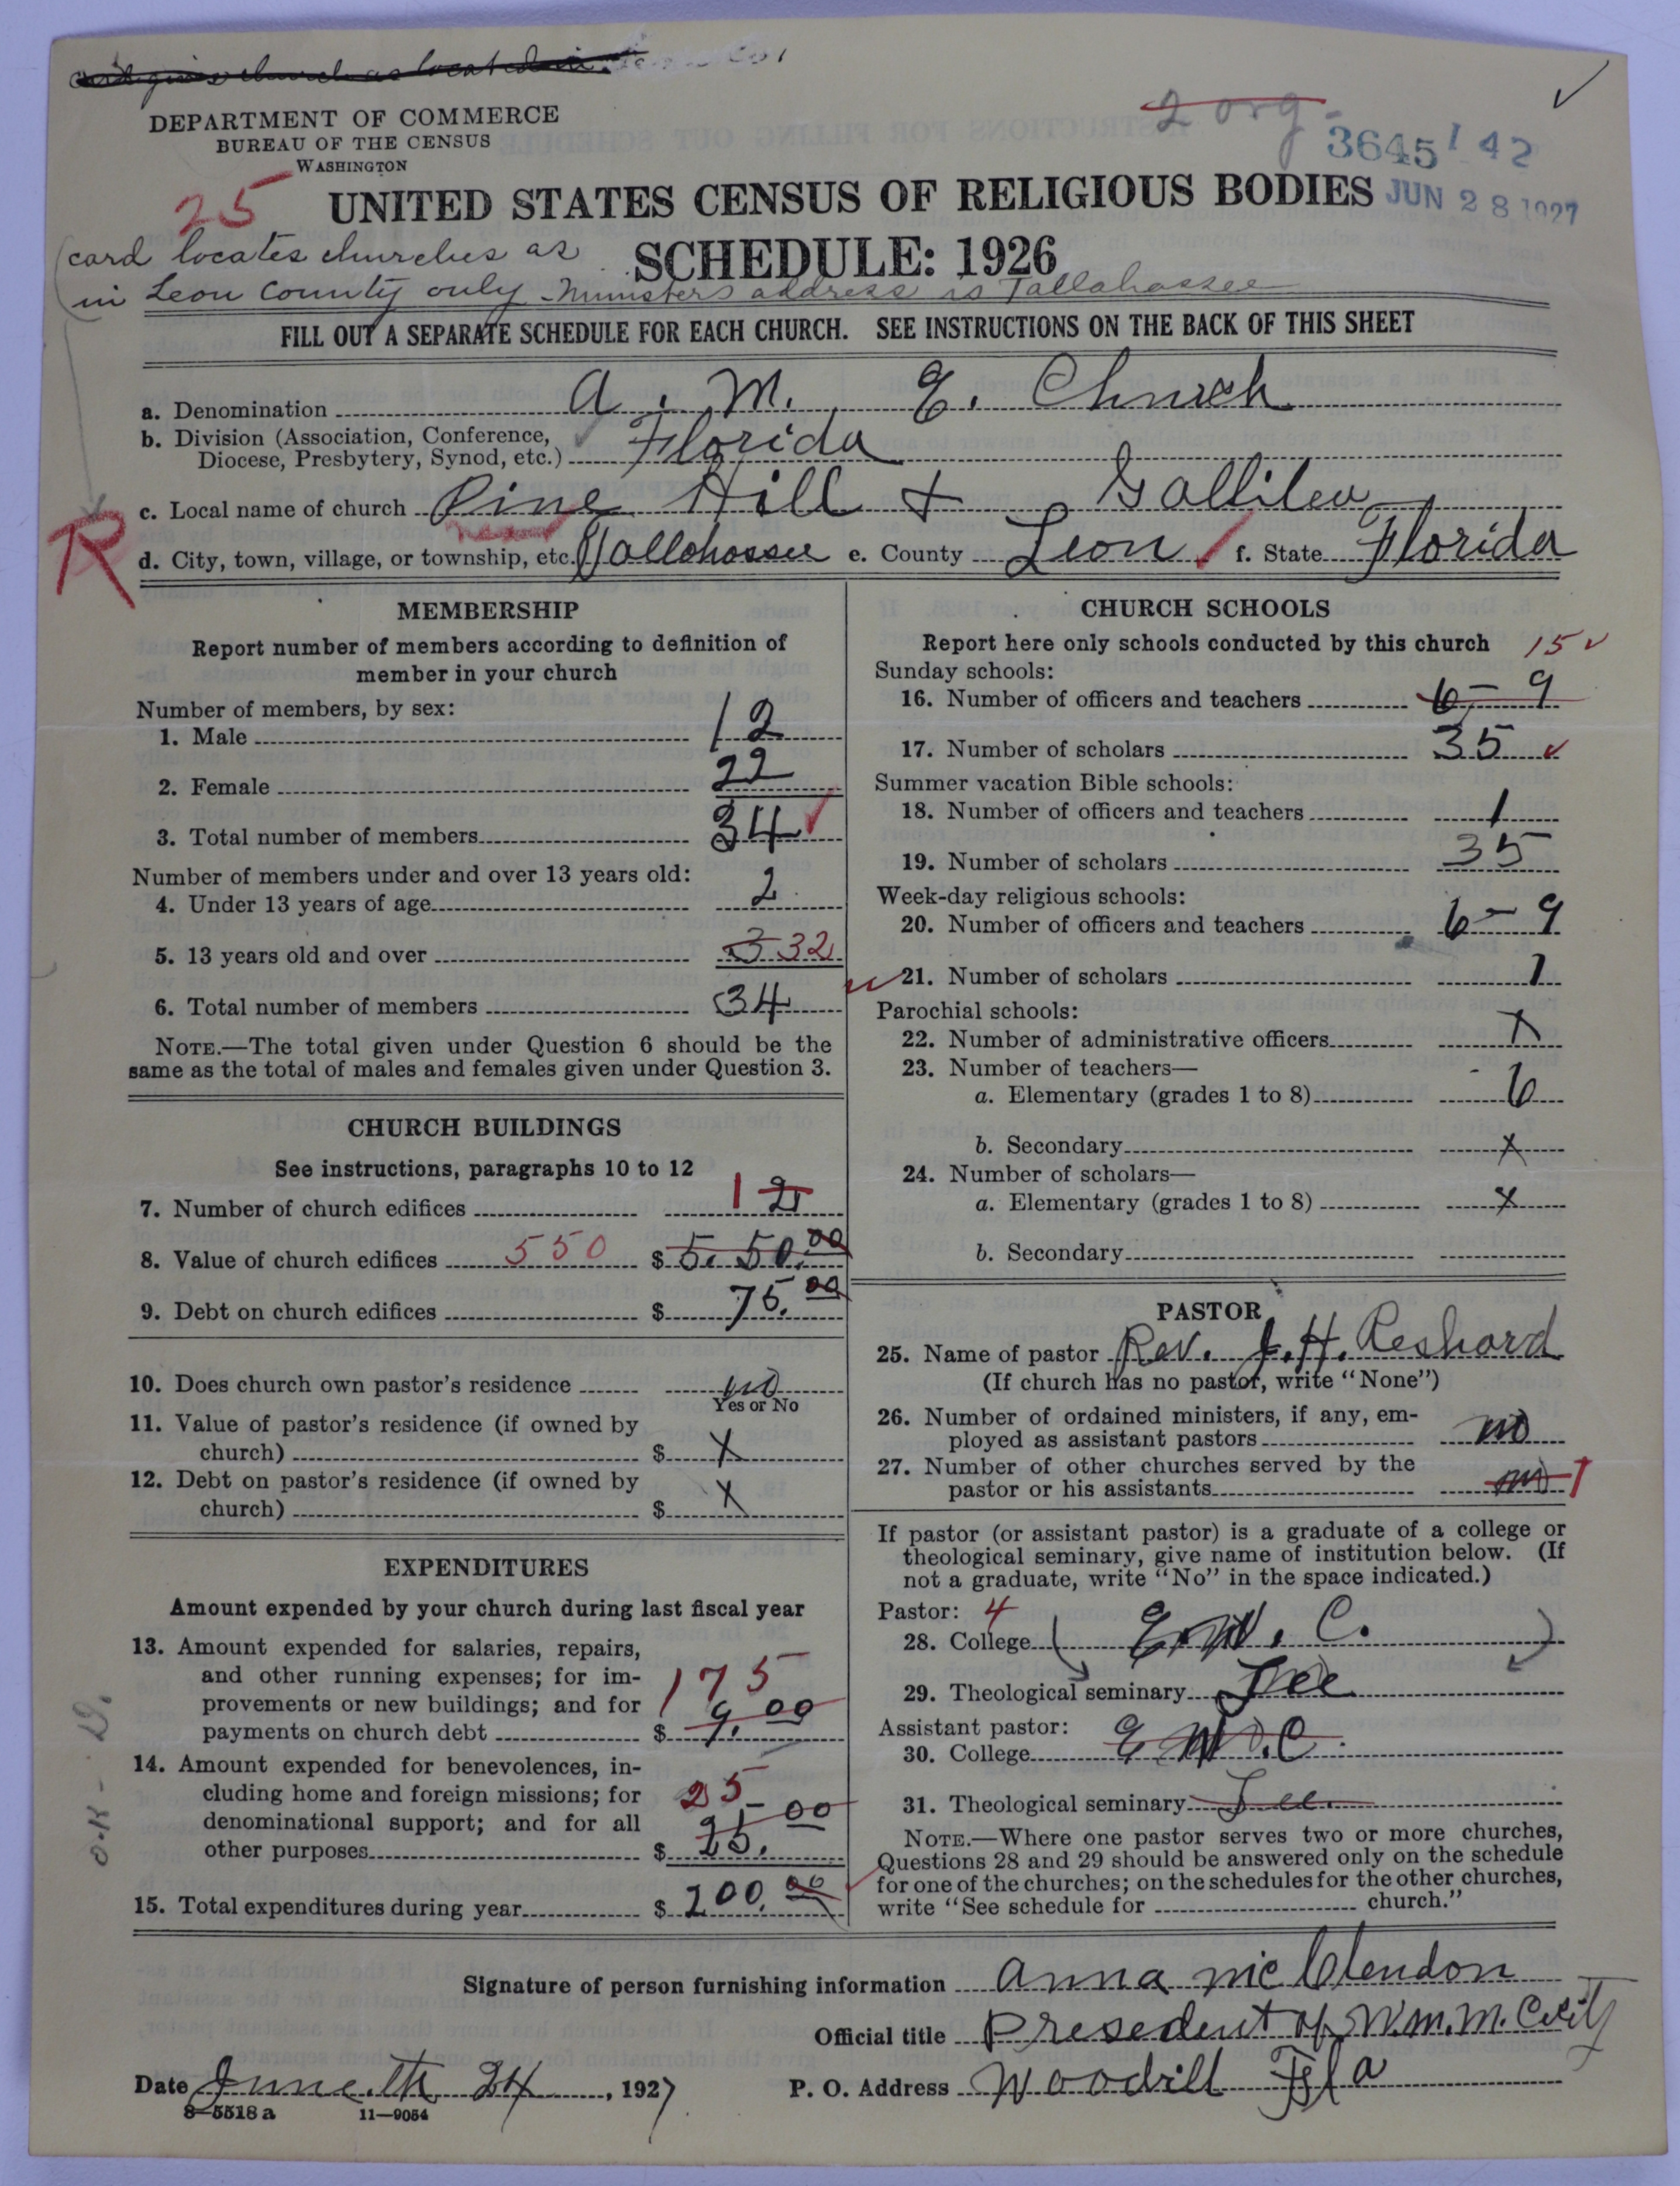 church as located in
DEPARTMENT OF COMMERCE
BUREAU OF THE CENSUS
WASHINGTON
2 org.
3645 1 42
JUN 28 1927
25
UNITED STATES CENSUS OF RELIGIOUS BODIES
SCHEDULE: 1926
(card locates churches as
in Leon County only - Ministers address is Tallahassee
FILL OUT A SEPARATE SCHEDULE FOR EACH CHURCH. SEE INSTRUCTIONS ON THE BACK OF THIS SHEET
a. Denomination A. M. E. Church
b. Division (Association, Conference,
Diocese, Presbytery, Synod, etc.) Florida
c. Local name of church Pine Hill + Gallilea
R
near
d. City, town, village, or township, etc. Tallohossee e. County Leon f. State Florida
MEMBERSHIP
Report number of members according to definition of
member in your church
Number of members, by sex:
1. Male 12
2. Female 22
3. Total number of members 34
Number of members under and over 13 years old:
4. Under 13 years of age 2
5. 13 years old and over 3 32
6. Total number of members 34
NOTE.—The total given under Question 6 should be the
same as the total of males and females given under Question 3.
CHURCH BUILDINGS
See instructions, paragraphs 10 to 12
7. Number of church edifices 1 2
8. Value of church edifices 550 $ 5. 50.00
9. Debt on church edifices $ 75.00
10. Does church own pastor's residence no
Yes or No
11. Value of pastor's residence (if owned by
church) $ X
12. Debt on pastor's residence (if owned by
church) $ X
EXPENDITURES
Amount expended by your church during last fiscal year
13. Amount expended for salaries, repairs,
and other running expenses; for im-
provements or new buildings; and for 175
payments on church debt $ 9.00
14. Amount expended for benevolences, in-
cluding home and foreign missions; for 25
denominational support; and for all
other purposes $ 25.00
15. Total expenditures during year $ 200.00
CHURCH SCHOOLS
Report here only schools conducted by this church 15
Sunday schools:
16. Number of officers and teachers 6 - 9
17. Number of scholars 35
Summer vacation Bible schools:
18. Number of officers and teachers 1
19. Number of scholars 35
Week-day religious schools:
20. Number of officers and teachers 6 - 9
21. Number of scholars 1
Parochial schools:
22. Number of administrative officers X
23. Number of teachers—
a. Elementary (grades 1 to 8) 6
b. Secondary X
24. Number of scholars—
a. Elementary (grades 1 to 8) X
b. Secondary
PASTOR
25. Name of pastor Rev. J. H. Reshard
(If church has no pastor, write "None")
26. Number of ordained ministers, if any, em-
ployed as assistant pastors no
27. Number of other churches served by the
pastor or his assistants no 1
If pastor (or assistant pastor) is a graduate of a college or
theological seminary, give name of institution below. (If
not a graduate, write "No" in the space indicated.)
Pastor: 4
28. College E. W. C.
29. Theological seminary Lee
Assistant pastor:
30. College E W. C.
31. Theological seminary Lee
NOTE.—Where one pastor serves two or more churches,
Questions 28 and 29 should be answered only on the schedule
for one of the churches; on the schedules for the other churches,
write "See schedule for church."
O.K - D.
Signature of person furnishing information Anna McClendon
Official title Presedent of W.M.M. Cecity
Date June th 24, 1927 P. O. Address Woodvill Fla
8-5518 a 11-9054